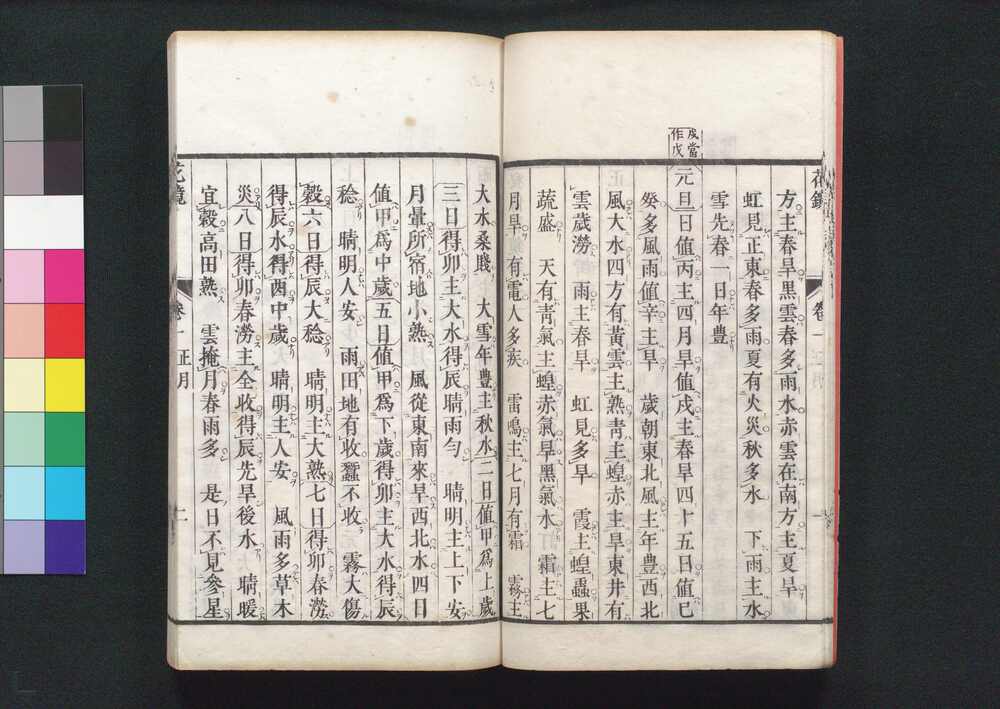 戍當
作戊
方主春旱黑雲春多雨水赤雲在南方主夏旱
虹見正東春多雨夏有火災秋多水　下雨主水
雪先春一日年豊
元旦日値丙主四月旱値戍主春旱四十五日値已
癸多風雨値辛主旱　歲朝東北風主年豊西北
風大水四方有黃雲主熟靑主蝗赤主旱東井有
雲歲澇　雨主春旱　虹見多旱　霞主蝗蟲果
蔬盛　天有靑氣主蝗赤氣旱黑氣水　霜主七
月旱　有電人多疾　雷鳴主七月有霜　霧主
大水桑賤　大雪年豊主秋水二日値甲爲上歲
三日得卯主大水得辰晴雨勻　晴明主上下安
月暈所宿地小熟　風從東南來旱西北水四日
値甲爲中歲五日値甲爲下歲得卯主大水得辰
稔　晴明人安　雨田地有收蠶不收　霧大傷
穀六日得辰大稔　晴明主大熟七日得卯春澇
得辰水得酉中歲　晴明主人安　風雨多草木
災八日得卯春澇主全收得辰先旱後水　晴暖
宜穀高田熟　雲掩月春雨多　是日不見參星
花鏡　卷一　正月　二